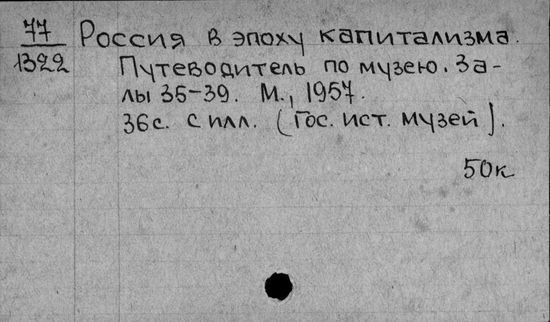 77
1322
Россия в эпоху капитализма.
Путеводитель по музею. За-
лы 35-39. М., 1957.
36с. с илл. (Гос. ист. музей).
50к